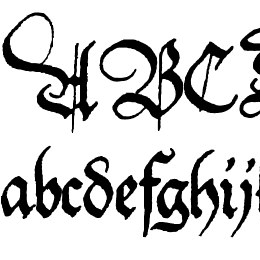 ABC
abcdefghij